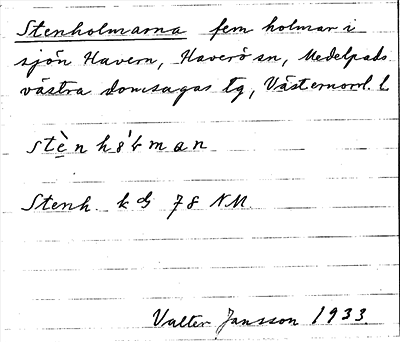 Stenholmarna fem holmar i
sjön Havern, Haverö sn, Medelpads
västra domsagas tg, Västernorrl. l.
stèn hɔ̀ɫman
Stenh. k 78 NM
Valter Jansson 1933.